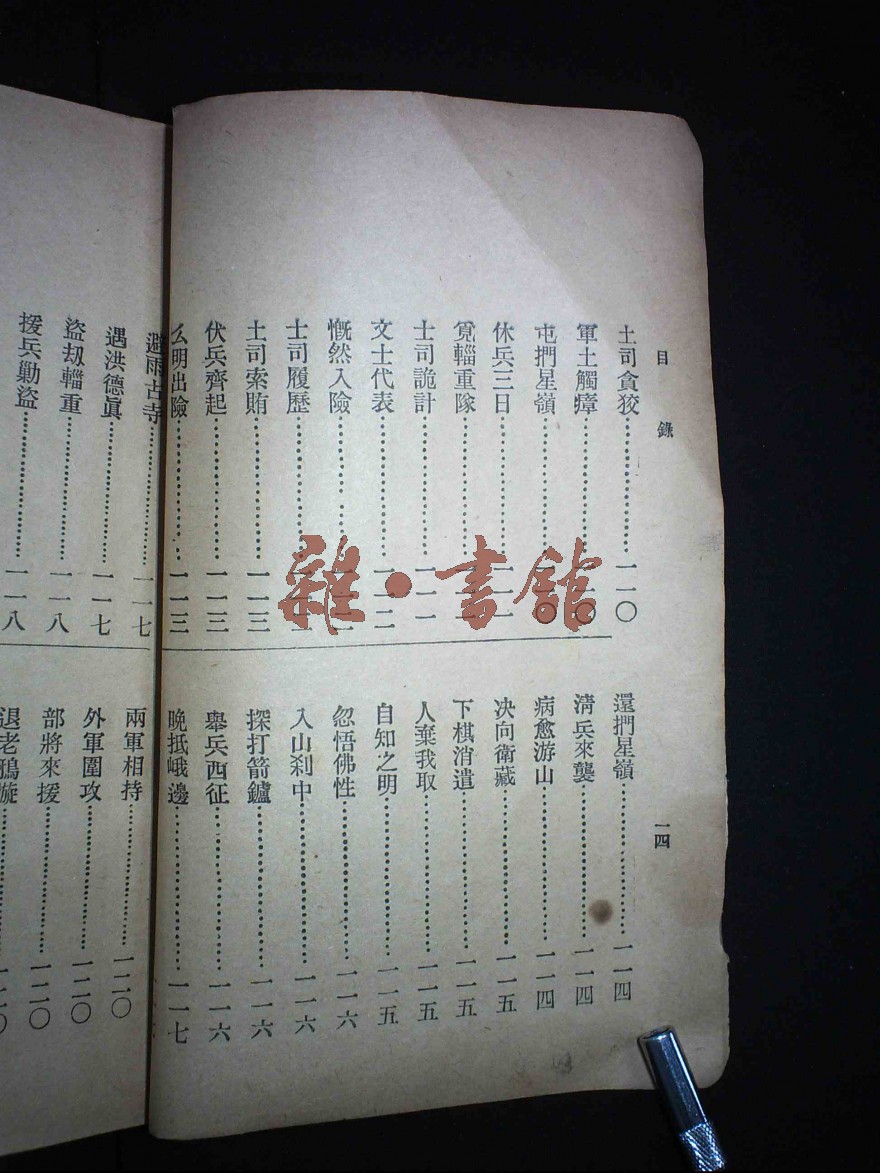 目錄
一四
土司貪狡……一一〇
軍土觸瘴……一一〇
屯捫星嶺……一一〇
休兵三日……
覓輜重隊……
士司詭計……一一一
文士代表……一一二
慨然入險……
士司履歷……
土司索賄……一一三
伏兵齊起……一一三
么明出險……一一三
還捫星嶺……一一四
淸兵來襲……一一四
病愈游山……一一四
决向衛藏……一一五
下棋消遣……一一五
人棄我取……一一五
自知之明……一一五
忽悟佛性……一一六
入山刹中……一一六
探打箭鑪……一一六
舉兵西征……一一六
晚抵峨邊……一一七
避雨古寺……一一七
遇洪德眞……一一七
盜刼輜重……一一八
援兵勦盜……一一八
兩軍相持……一二〇
外軍圍攻……一二〇
部將來援……一二〇
退老鴉漩……一二〇
雜·書館